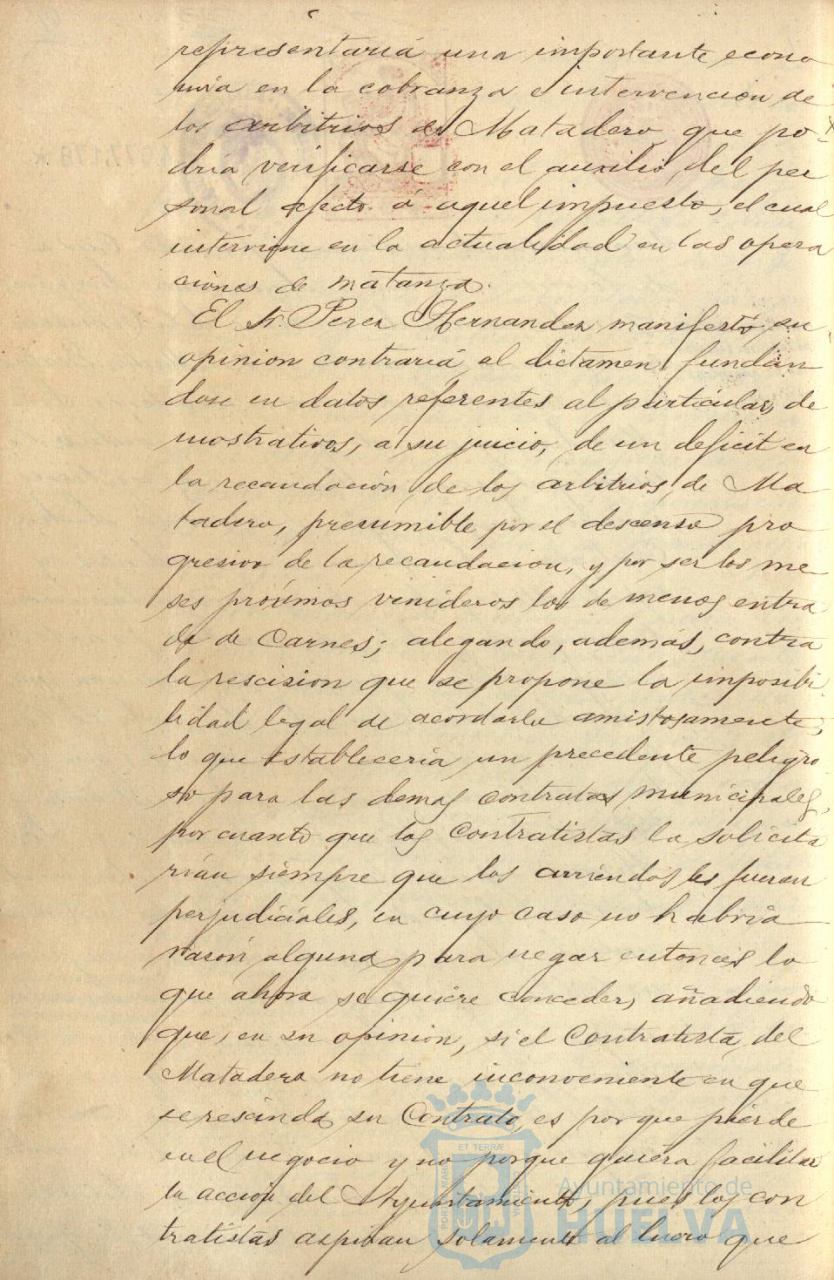 representaria una importante econo
mia en la cobranza e intervencion de
los arbitrios de Matadero, que po-
dria verificarse con el auxilio, del per
sonal afecto á aquel impuesto, el cual
interviene en la actualidad en las opera
ciones de matanza.
El Sr. Perez Hernandez manifestó, su
opinion contraria al dictamen, fundan
dose en datos referentes al particular, de
mostrativos, á su juicio, de un deficit en
la recaudación, de los arbitrios, de Ma
tadero, presumible por el descenso pro
gresivo de la recaudacion, y por ser los me
ses próximos venideros los de menos entra
da de Carnes; alegando, además, contra
la rescision que se propone la imposibi
lidad legal de acordarla amistosamente,
lo que estableceria un precedente peligro
so para las demas contratas municipales,
por cuanto que los Contratistas la solicita
rían siempre que los arriendos les fueran
perjudiciales, en cuyo caso no habria
razón alguna para negar entonces lo
que ahora se quiere conceder, añadiendo
que, en su opinion, si el Contratista, del
Matadero no tiene inconveniente en que
se rescinda su Contrato, es por que pierde
en el negocio y no porque quiera facilitar
la accion del Ayuntamiento, pues los con
tratistas aspiran solamente al lucro que
ET TERRÆ
Ayuntamiento de
HUELVA